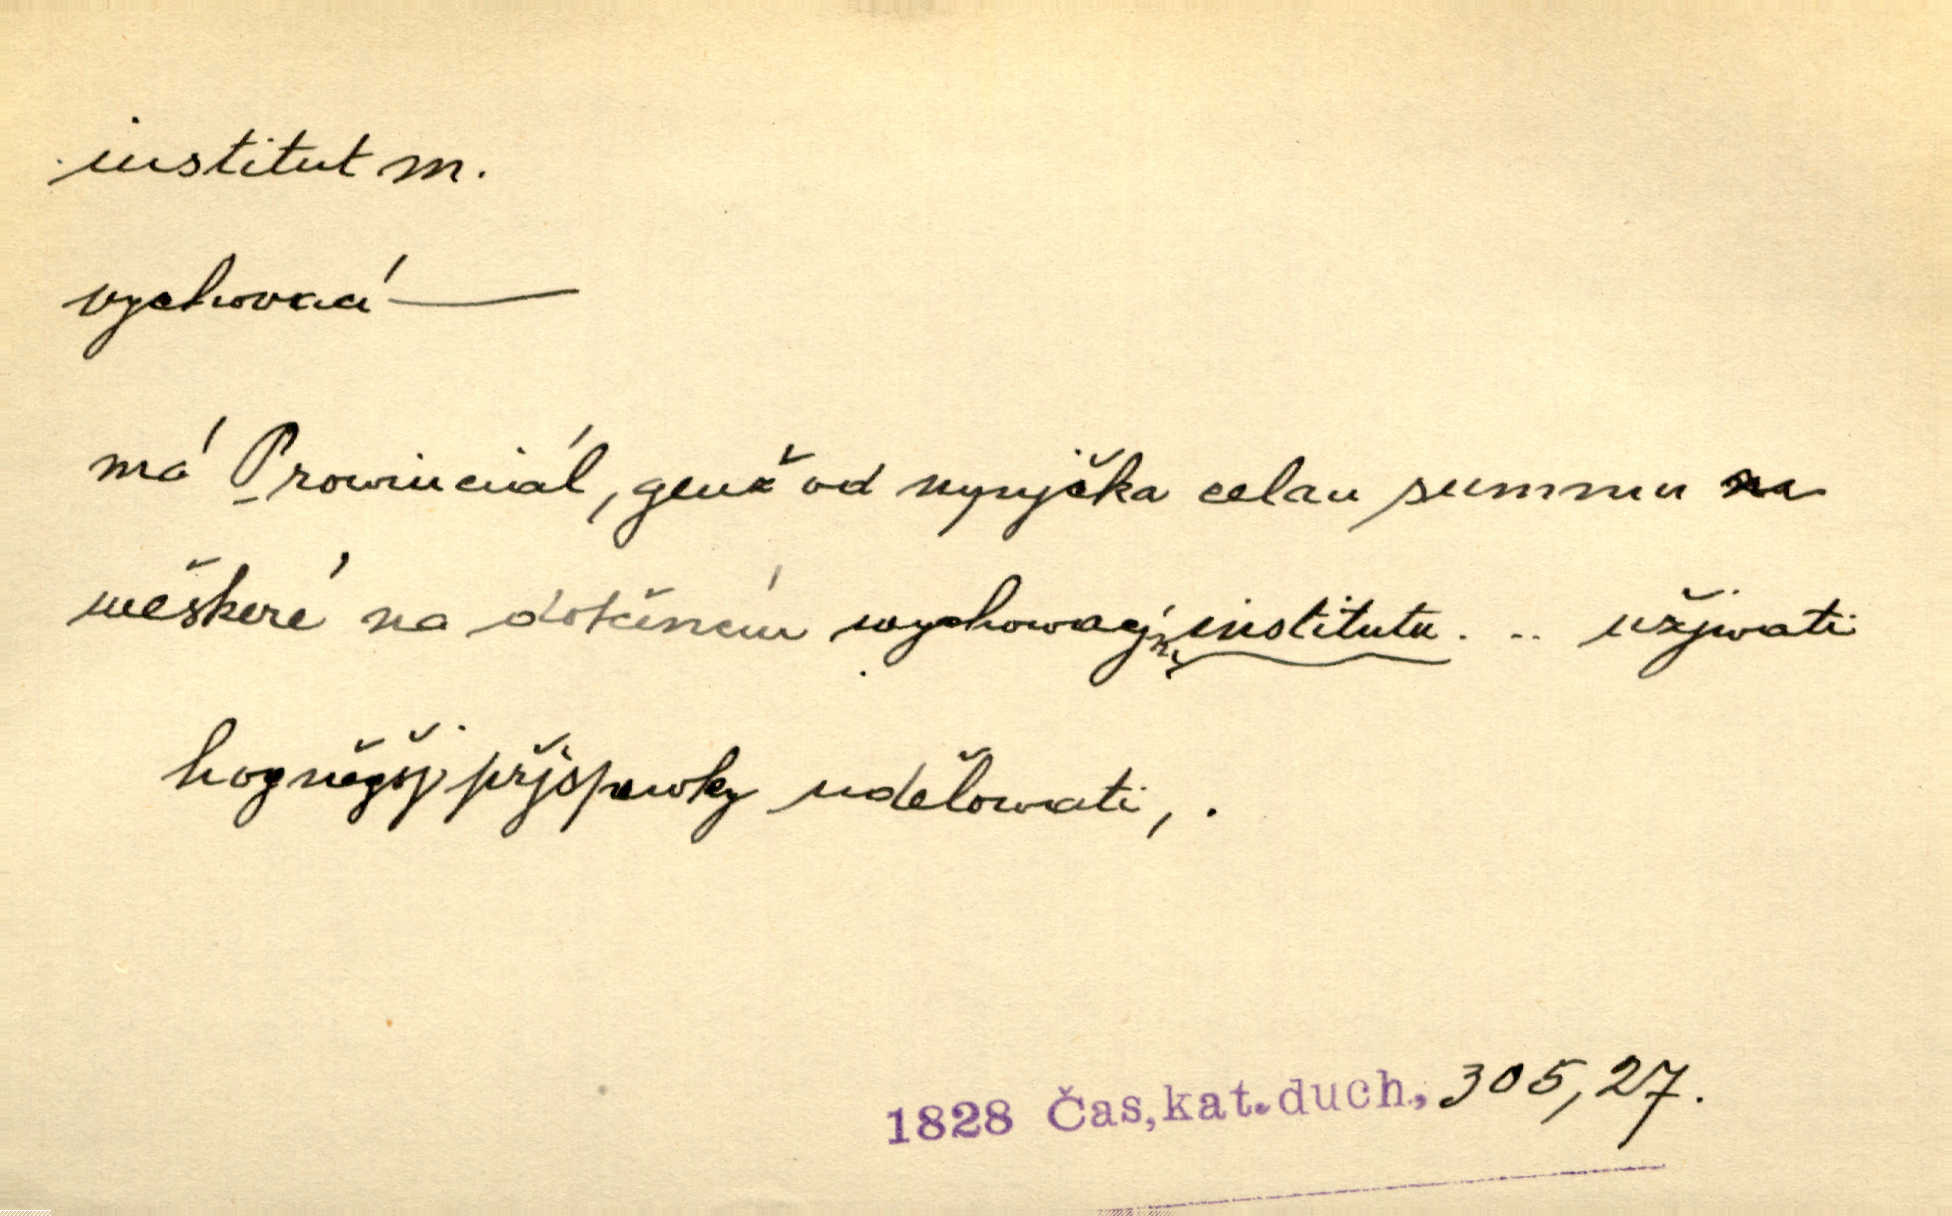 institut m.
vychovací —
má Prowinciál, genž od nynjčka celau summu na
weškeré na dotčeném wychowacý institutu. .. užjwati
hogněgšj přjspěwky udělowati, .
1828 Čas, kat. duch., 305, 27.